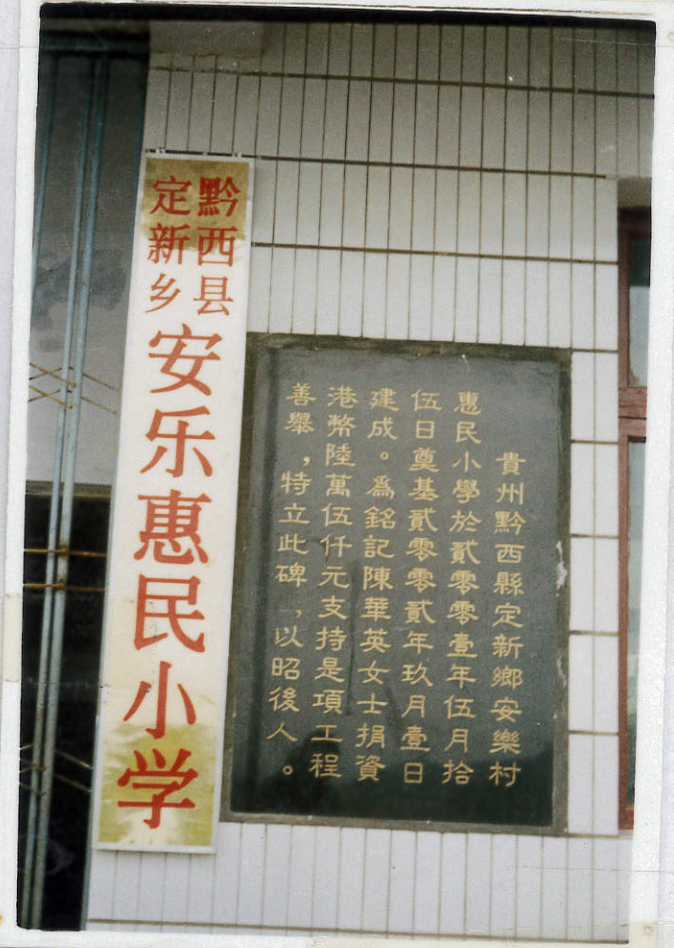 黔西县
定新乡
安乐惠民小学
貴州黔西縣定新鄉安樂村
惠民小學於貳零零壹年伍月拾
伍日奠基貳零零貳年玖月壹日
建成。為銘記陳華英女士捐資
港幣陸萬伍仟元支持是項工程
善舉，特立此碑，以昭後人。